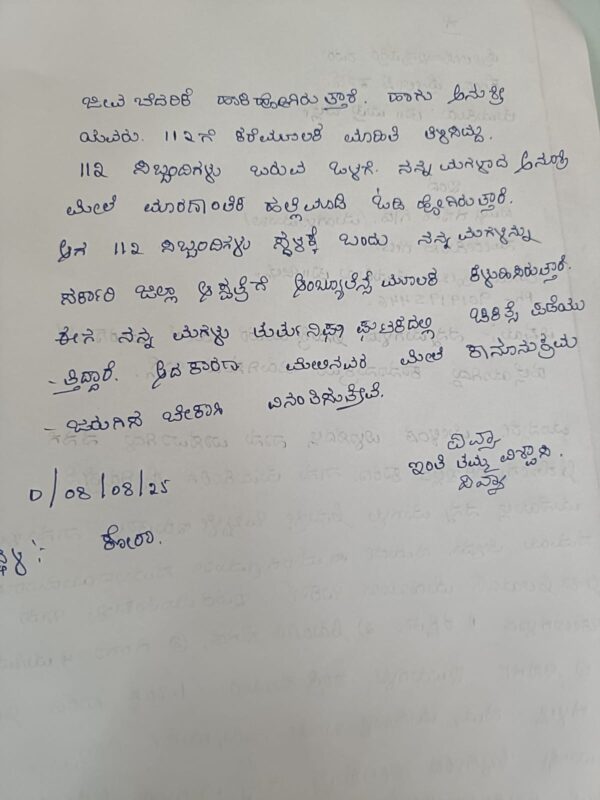 ಜೀವ ಬೆದರಿಕೆ ಹಾಕಿ ಹೋಗಿರುತ್ತಾರೆ. ಹಾಗು ಅನುಶ್ರೀ
ಯವರು. 112ಗೆ ಕರೆಮೂಲಕ ಮಾಹಿತಿ ತಿಳಿಸಿದ್ದು.
112 ಸಿಬ್ಬಂದಿಗಳು ಬರುವ ಒಳಗೆ. ನನ್ನ ಮಗಳಾದ ಅನುಶ್ರೀ
ಮೇಲೆ ಮಾರಣಾಂತಿಕ ಹಲ್ಲೆ ಮಾಡಿ ಓಡಿ ಹೋಗಿರುತ್ತಾರೆ.
ಆಗ 112 ಸಿಬ್ಬಂದಿಗಳು ಸ್ಥಳಕ್ಕೆ ಬಂದು ನನ್ನ ಮಗಳನ್ನು
ಸರ್ಕಾರಿ ಜಿಲ್ಲಾ ಆಸ್ಪತ್ರೆಗೆ ಆಂಬ್ಯೂಲೆನ್ಸ್ ಮೂಲಕ ಕಳುಹಿಸಿರುತ್ತಾರೆ.
ಈಗ ನನ್ನ ಮಗಳು ತುರ್ತುನಿಘಾ ಘಟಕದಲ್ಲಿ ಚಿಕಿತ್ಸೆ ಪಡೆಯು
- ತ್ತಿದ್ದಾರೆ. ಆದ ಕಾರಣ ಮೇಲಿನವರ ಮೇಲೆ ಕಾನೂನುಕ್ರಮ
- ಜರುಗಿಸ ಬೇಕಾಗಿ ವಿನಂತಿಸುತ್ತೇವೆ.
ದಿವ್ಯಾ
ಇಂತಿ ತಮ್ಮ ವಿಶ್ವಾಸಿ.
ದಿವ್ಯಾ
D/08/08/25
ಸ್ಥಳ: ಕೋರಾ.